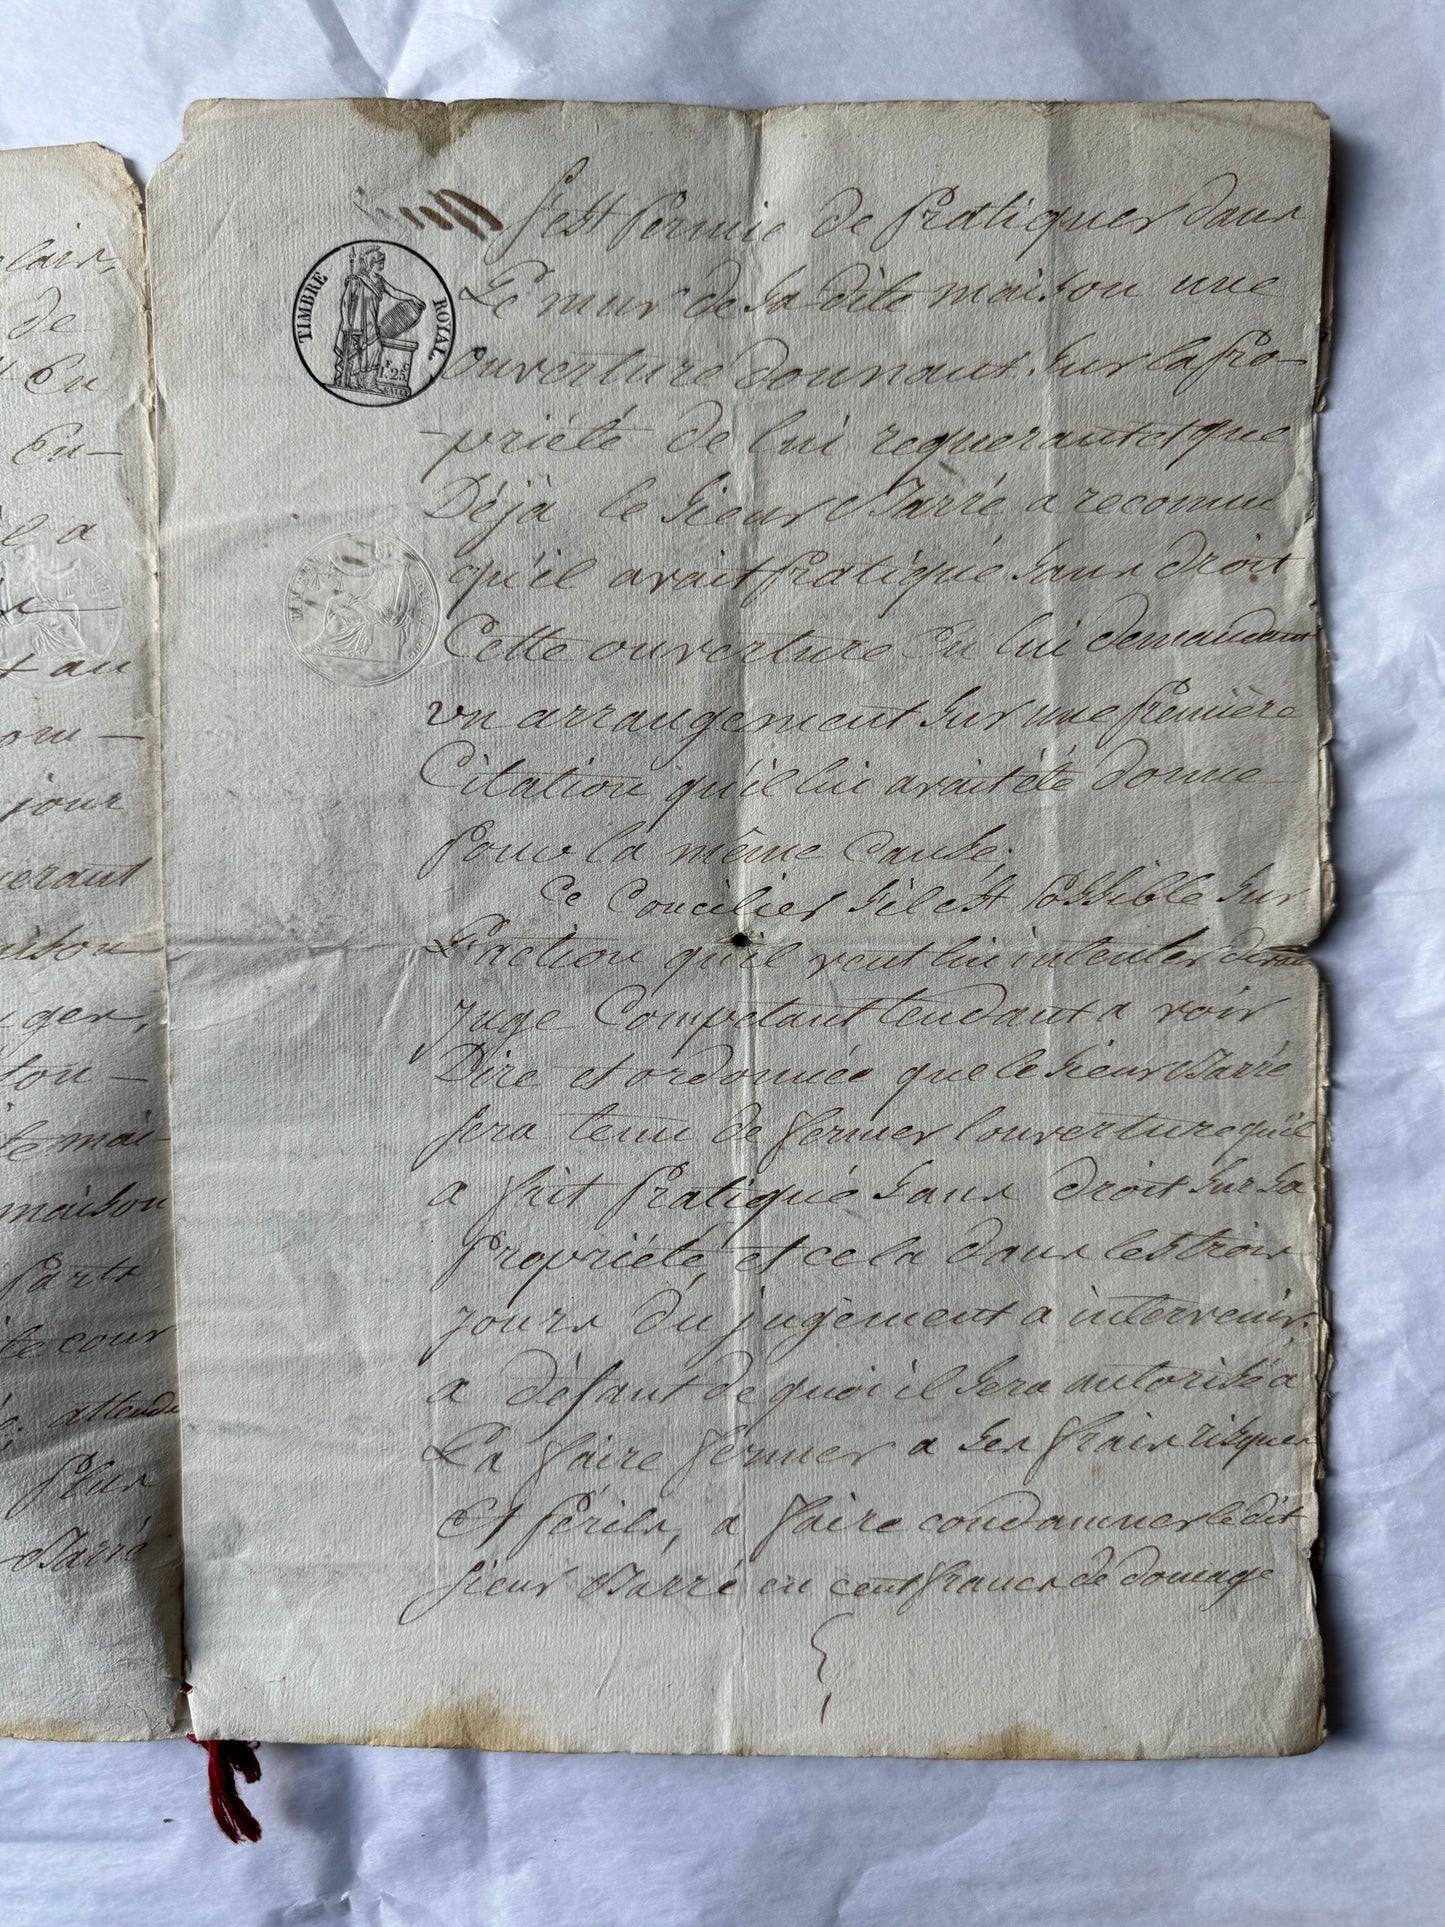 clair,
de
en
en-
il a
au
om-
jour
uerant
aison
ger,
son-
te mai-
maison
parts
te cour
attendu
plus
Barré
TIMBRE ROYAL
1.25
S'est permie de pratiquer dans
Le mur de sa dite maison une
ouverture donnant sur la pro-
-priété de lui requerant et que
Déjà le sieur Barré a reconnu
qu'il avait pratiqué sans droit
Cette ouverture en lui demandant
un arrangement sur une première
Citation qu'il lui avait été donne
pour la même cause.
Ce Concilier s'il est possible sur
L'action qu'il veut lui intenter devant
juge Compétant tendant a voir
Dire et ordonnée que le sieur Barré
sera tenu de fermer l'ouverture qu'il
a fait pratiqué sans droit sur sa
propriété, et cela dans les trois
jours du jugement a intervenir,
a défaut de quoi il sera autorisé a
La faire fermer a ses frais risques
Et périls, a faire condamner le dit
sieur Barré en cent francs de domage